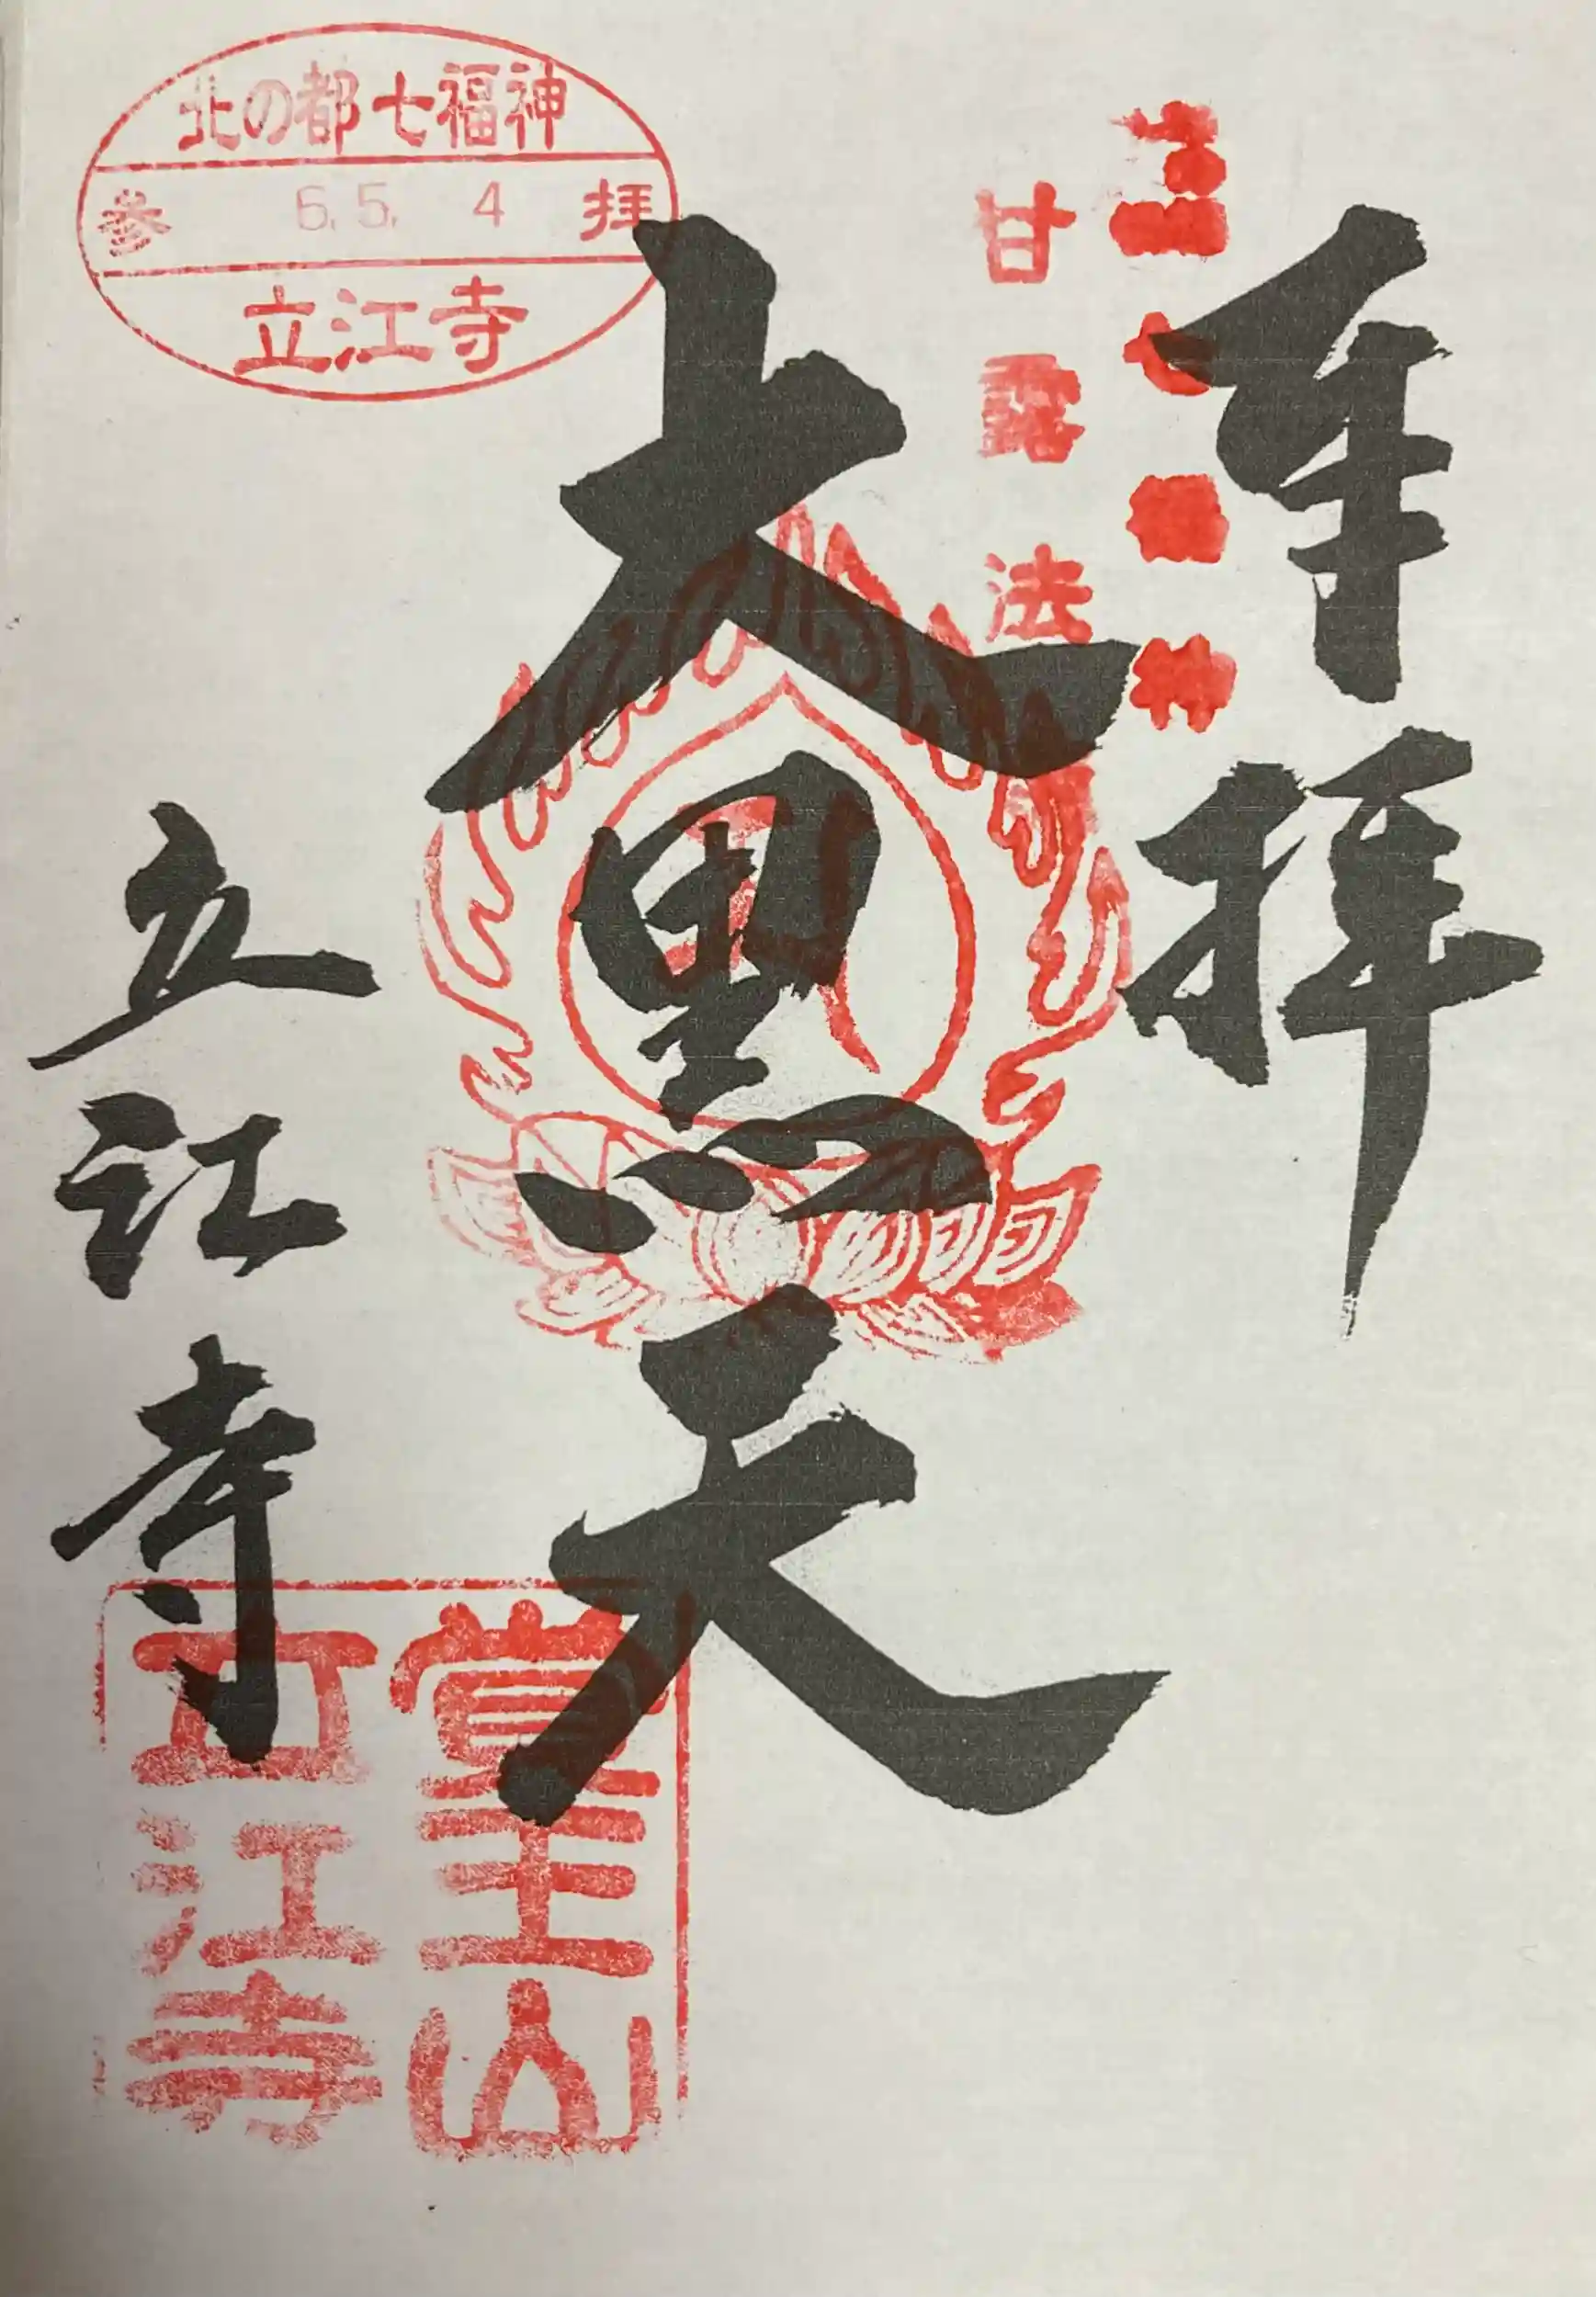 奉拝
七福神
甘露法
大黒天
立江寺
北の都七福神
参 6.5.4 拝
立江寺
立江寺